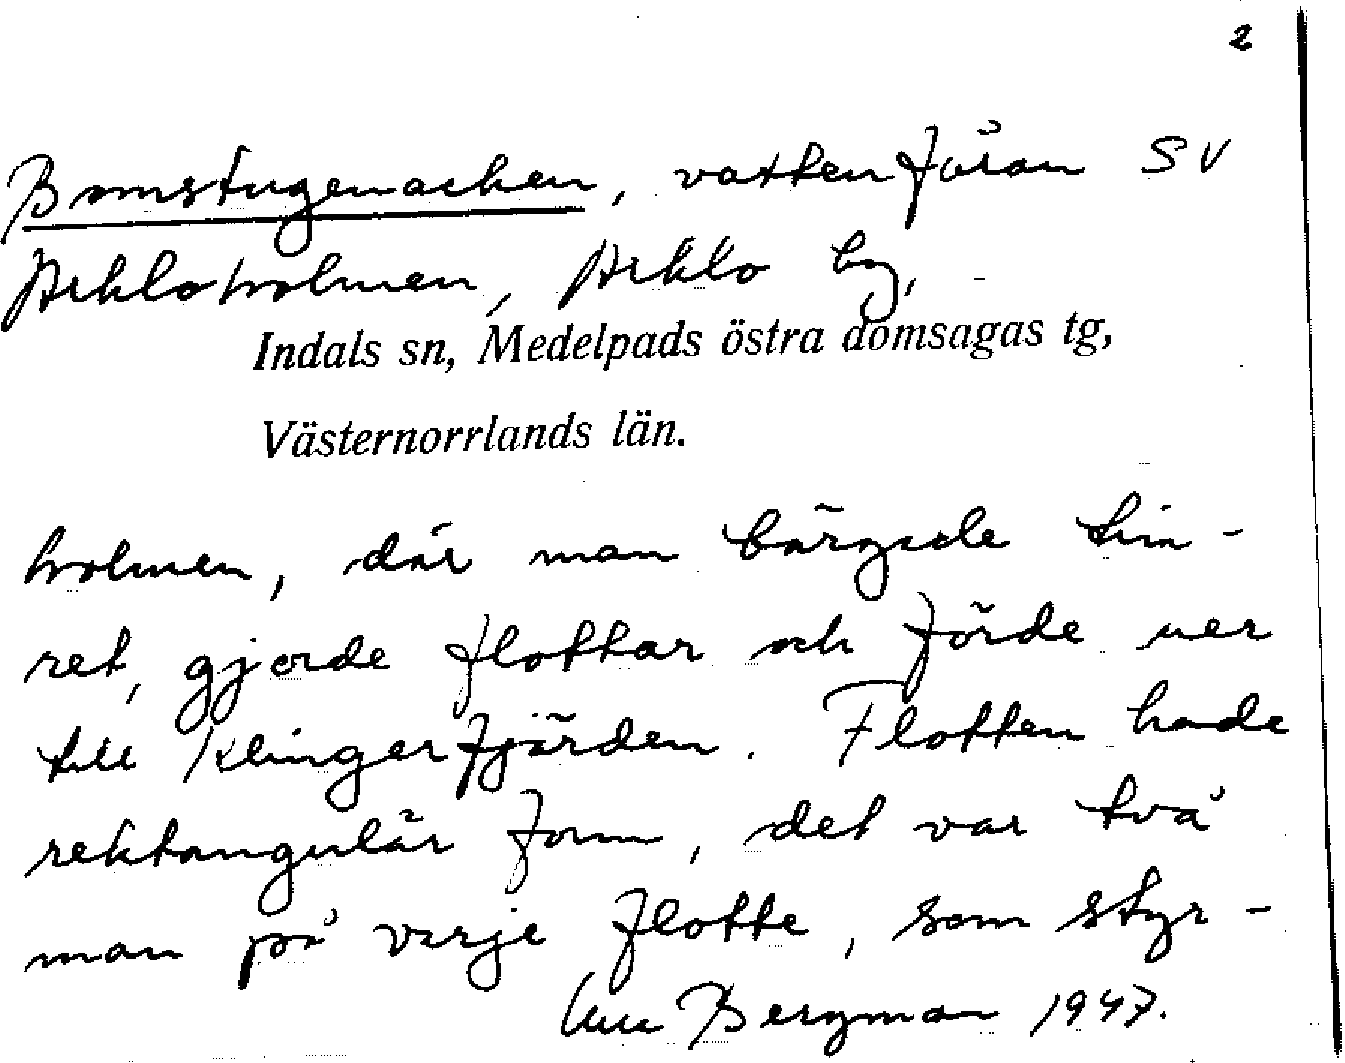 2
Bomstugenacken, vattenfåran SV
Arkloholmen, Arklo by,
Indals sn, Medelpads östra domsagas tg,
Västernorrlands län.
holmen, där man bärgade tim-
ret, gjorde flottar och förde ner
till Klingerfjärden. Flotten hade
rektangulär form, det var två
man på varje flotte, som styr-
Bergman 1947.